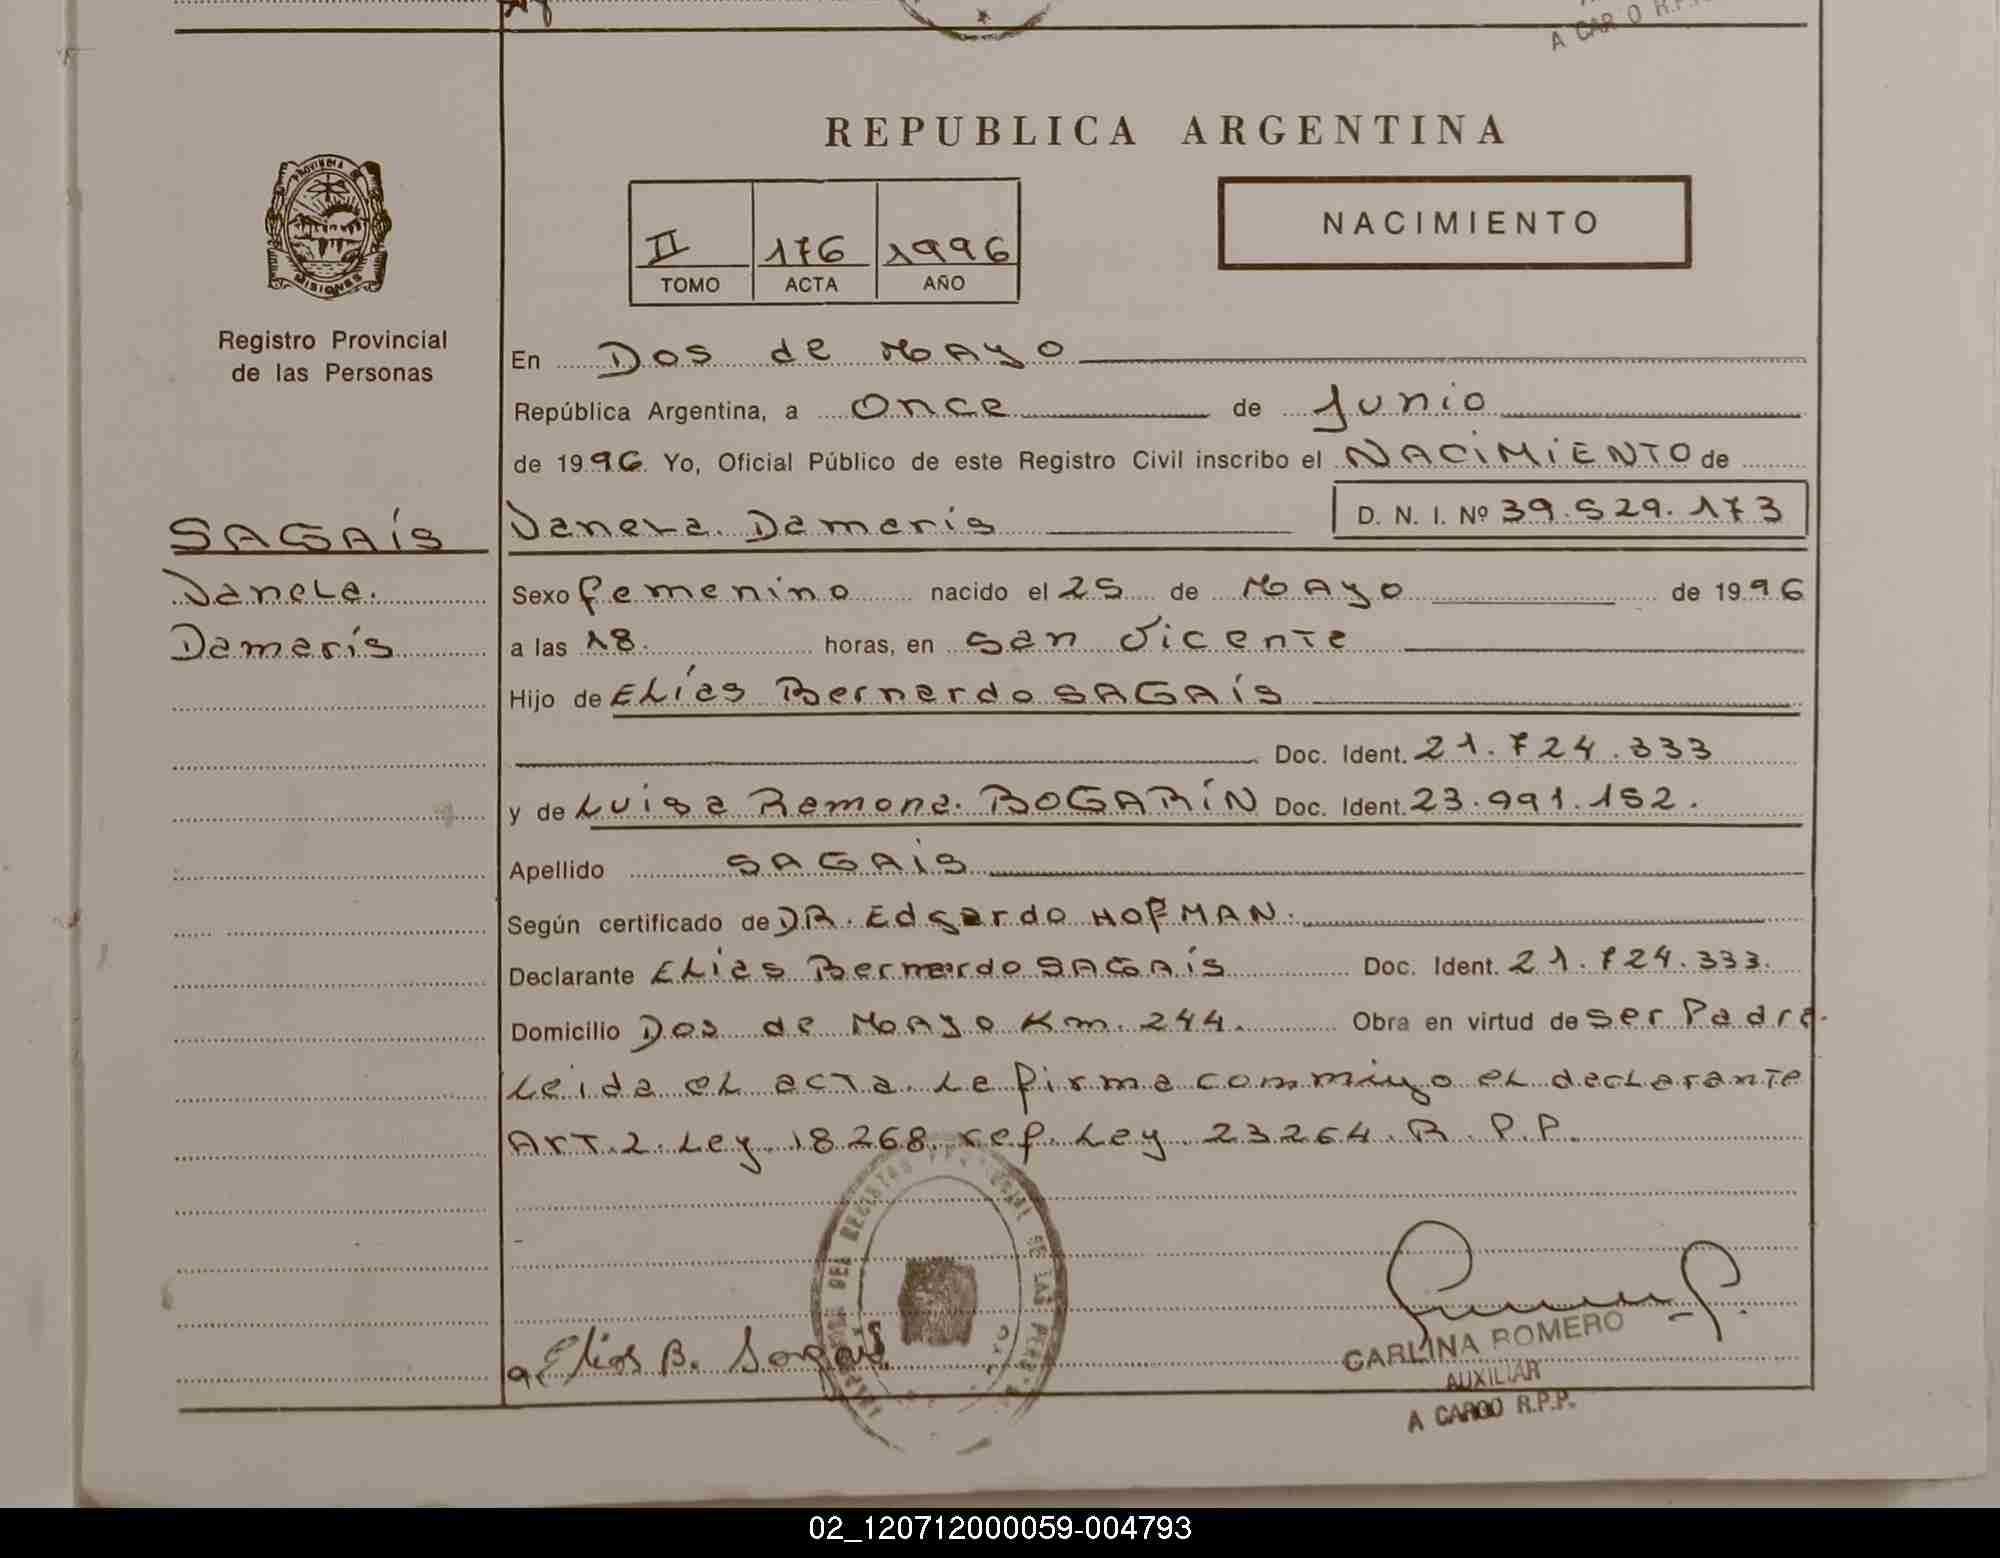 A CAR O R.P.
REPUBLICA ARGENTINA
PROVINCIA DE
MISIONES
II 176 1996
TOMO ACTA AÑO
NACIMIENTO
Registro Provincial
de las Personas
En Dos de MAyo
República Argentina, a Once de Junio
de 1996. Yo, Oficial Público de este Registro Civil inscribo el NACIMIENTO de
SAGAÍS
Vanela. Damaris
D. N. I. Nº 39.529.173
Vanela.
Damarís
Sexo femenino nacido el 25 de MAyo de 1996
a las 18. horas, en San Vicente
Hijo de Elías Bernardo SAGAÍS
Doc. Ident. 21.724.333
y de Luisa Ramona. BOGARÍN Doc. Ident. 23.991.152.
Apellido SAGAÍS
Según certificado de DR. Edgardo HOFMAN.
Declarante Elias Bernardo SAGAÍS Doc. Ident. 21.724.333.
Domicilio Dos de MAyo Km. 244. Obra en virtud de ser Padre.
Leida el acta. La firma conmigo el declarante
Art. 2. Ley. 18268. ref. Ley. 23264. R. P.P.
DEL REGISTRO DE LAS
Elias B. Sagaís
CARLINA ROMERO
AUXILIAR
A CARGO R.P.P.
02_120712000059-004793